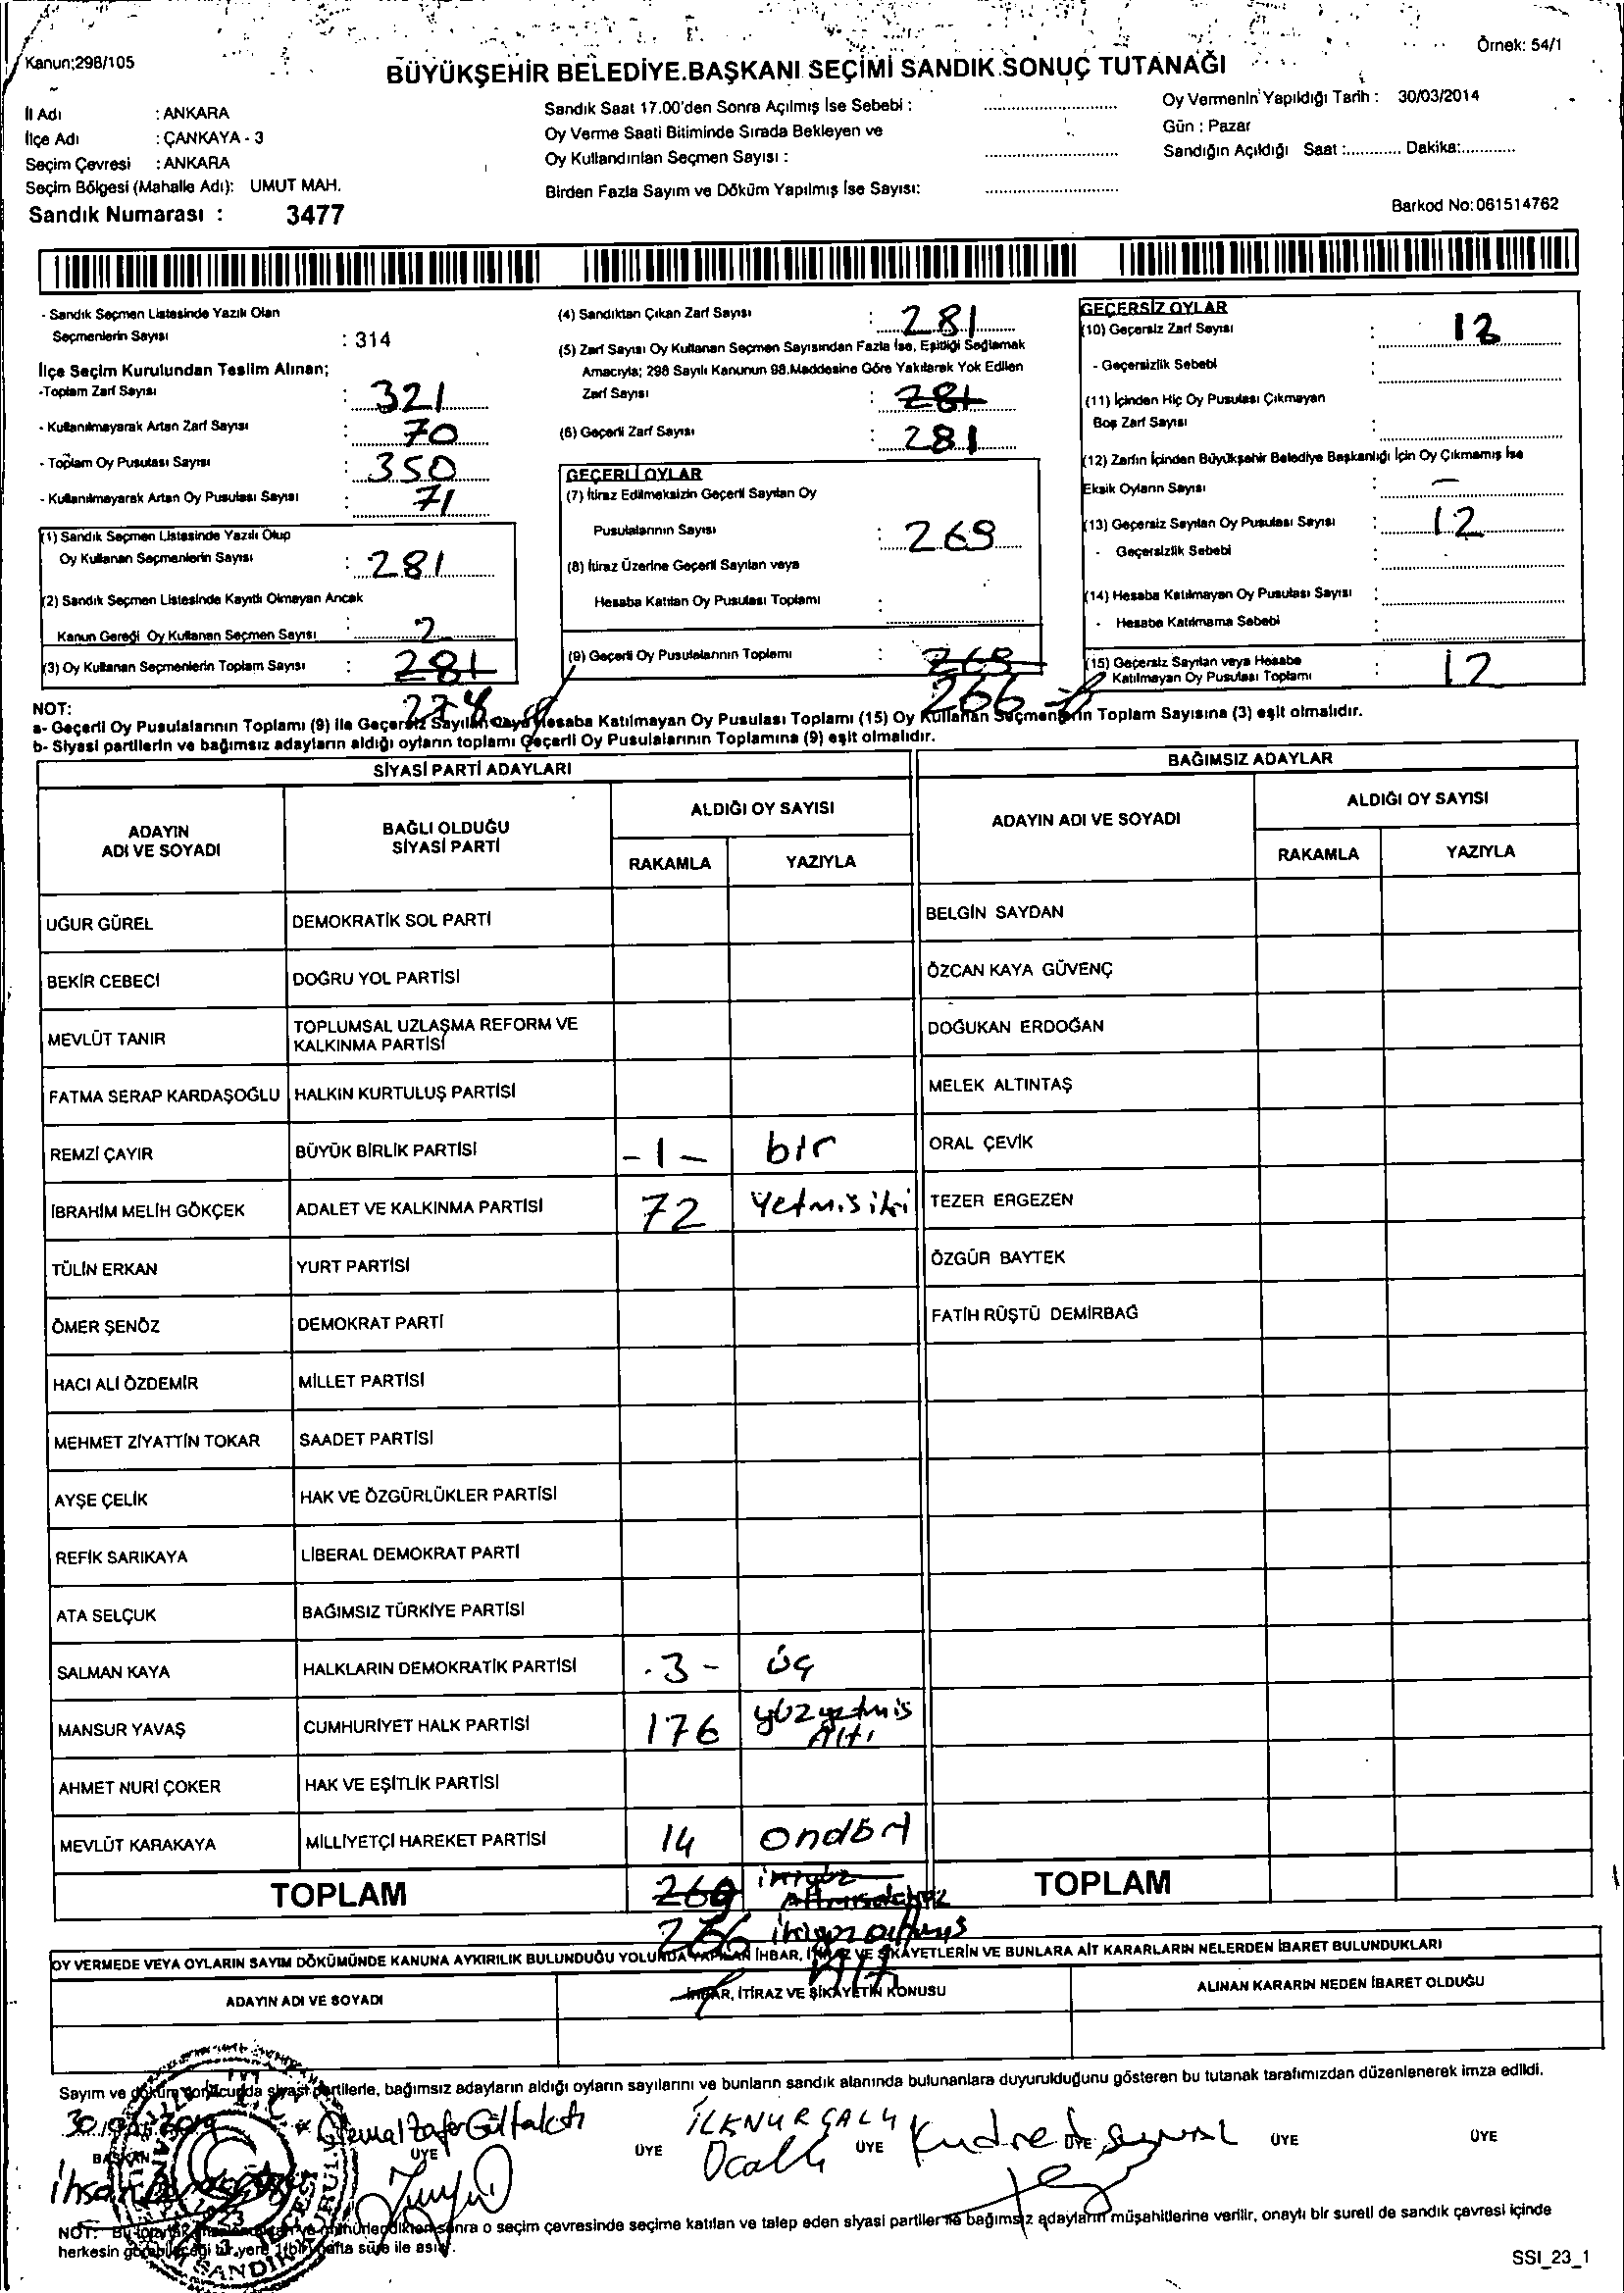 Örnek: 54/1
Kanun;298/105
BÜYÜKŞEHİR BELEDİYE BAŞKANI SEÇİMİ SANDIK SONUÇ TUTANAĞI
İl Adı : ANKARA
İlçe Adı : ÇANKAYA - 3
Seçim Çevresi : ANKARA
Seçim Bölgesi (Mahalle Adı): UMUT MAH.
Sandık Numarası : 3477
Sandık Saat 17.00'den Sonra Açılmış İse Sebebi :
Oy Verme Saati Bitiminde Sırada Bekleyen ve
Oy Kullandırılan Seçmen Sayısı :
Birden Fazla Sayım ve Döküm Yapılmış İse Sayısı:
Oy Vermenin Yapıldığı Tarih : 30/03/2014
Gün : Pazar
Sandığın Açıldığı Saat :............ Dakika:............
Barkod No:061514762
- Sandık Seçmen Listesinde Yazılı Olan
Seçmenlerin Sayısı : 314
İlçe Seçim Kurulundan Teslim Alınan;
-Toplam Zarf Sayısı : 321
- Kullanılmayarak Artan Zarf Sayısı : 70
- Toplam Oy Pusulası Sayısı : 350
- Kullanılmayarak Artan Oy Pusulası Sayısı : 71
(1) Sandık Seçmen Listesinde Yazılı Olup
Oy Kullanan Seçmenlerin Sayısı : 281
(2) Sandık Seçmen Listesinde Kayıtlı Olmayan Ancak
Kanun Gereği Oy Kullanan Seçmen Sayısı : 2
(3) Oy Kullanan Seçmenlerin Toplam Sayısı : 281
278
(4) Sandıktan Çıkan Zarf Sayısı : 281
(5) Zarf Sayısı Oy Kullanan Seçmen Sayısından Fazla İse, Eşitliği Sağlamak
Amacıyla; 298 Sayılı Kanunun 98.Maddesine Göre Yakılarak Yok Edilen
Zarf Sayısı : 281
(6) Geçerli Zarf Sayısı : 281
GEÇERLİ OYLAR
(7) İtiraz Edilmeksizin Geçerli Sayılan Oy
Pusulalarının Sayısı : 269
(8) İtiraz Üzerine Geçerli Sayılan veya
Hesaba Katılan Oy Pusulası Toplamı :
(9) Geçerli Oy Pusulalarının Toplamı : 269
266
GEÇERSİZ OYLAR
(10) Geçersiz Zarf Sayısı : 12
- Geçersizlik Sebebi :
(11) İçinden Hiç Oy Pusulası Çıkmayan
Boş Zarf Sayısı :
(12) Zarfın İçinden Büyükşehir Belediye Başkanlığı İçin Oy Çıkmamış İse
Eksik Oyların Sayısı : —
(13) Geçersiz Sayılan Oy Pusulası Sayısı : 12
- Geçersizlik Sebebi :
(14) Hesaba Katılmayan Oy Pusulası Sayısı :
- Hesaba Katılmama Sebebi :
(15) Geçersiz Sayılan veya Hesaba
Katılmayan Oy Pusulası Toplamı : 12
NOT:
a- Geçerli Oy Pusulalarının Toplamı (9) ile Geçersiz Sayılan veya Hesaba Katılmayan Oy Pusulası Toplamı (15) Oy Kullanan Seçmenlerin Toplam Sayısına (3) eşit olmalıdır.
b- Siyasi partilerin ve bağımsız adayların aldığı oyların toplamı Geçerli Oy Pusulalarının Toplamına (9) eşit olmalıdır.
SİYASİ PARTİ ADAYLARI
BAĞIMSIZ ADAYLAR
ADAYIN ADI VE SOYADI
BAĞLI OLDUĞU SİYASİ PARTİ
ALDIĞI OY SAYISI
RAKAMLA YAZIYLA
ADAYIN ADI VE SOYADI
ALDIĞI OY SAYISI
RAKAMLA YAZIYLA
UĞUR GÜREL DEMOKRATİK SOL PARTİ BELGİN SAYDAN
BEKİR CEBECİ DOĞRU YOL PARTİSİ ÖZCAN KAYA GÜVENÇ
MEVLÜT TANIR TOPLUMSAL UZLAŞMA REFORM VE KALKINMA PARTİSİ DOĞUKAN ERDOĞAN
FATMA SERAP KARDAŞOĞLU HALKIN KURTULUŞ PARTİSİ MELEK ALTINTAŞ
REMZİ ÇAYIR BÜYÜK BİRLİK PARTİSİ -1- bir ORAL ÇEVİK
İBRAHİM MELİH GÖKÇEK ADALET VE KALKINMA PARTİSİ 72 yetmişiki TEZER ERGEZEN
TÜLİN ERKAN YURT PARTİSİ ÖZGÜR BAYTEK
ÖMER ŞENÖZ DEMOKRAT PARTİ FATİH RÜŞTÜ DEMİRBAĞ
HACI ALİ ÖZDEMİR MİLLET PARTİSİ
MEHMET ZİYATTİN TOKAR SAADET PARTİSİ
AYŞE ÇELİK HAK VE ÖZGÜRLÜKLER PARTİSİ
REFİK SARIKAYA LİBERAL DEMOKRAT PARTİ
ATA SELÇUK BAĞIMSIZ TÜRKİYE PARTİSİ
SALMAN KAYA HALKLARIN DEMOKRATİK PARTİSİ -3- üç
MANSUR YAVAŞ CUMHURİYET HALK PARTİSİ 176 yüzyetmiş Altı
AHMET NURİ ÇOKER HAK VE EŞİTLİK PARTİSİ
MEVLÜT KARAKAYA MİLLİYETÇİ HAREKET PARTİSİ 14 Ondört
TOPLAM 269 ikiyüz TOPLAM
266 ikiyüzaltmış
Altı
OY VERMEDE VEYA OYLARIN SAYIM DÖKÜMÜNDE KANUNA AYKIRILIK BULUNDUĞU YOLUNDA YAPILAN İHBAR, İTİRAZ VE ŞİKAYETLERİN VE BUNLARA AİT KARARLARIN NELERDEN İBARET BULUNDUKLARI
ADAYIN ADI VE SOYADI İHBAR, İTİRAZ VE ŞİKAYETİN KONUSU ALINAN KARARIN NEDEN İBARET OLDUĞU
Sayım ve döküm sonucunda siyasi partilerle, bağımsız adayların aldığı oyların sayılarını ve bunların sandık alanında bulunanlara duyurulduğunu gösteren bu tutanak tarafımızdan düzenlenerek imza edildi.
İLKNUR ÇALLI
BAŞKAN ÜYE ÜYE ÜYE ÜYE ÜYE ÜYE
İhsan
NOT: Bu tutanak imzalandıktan ve mühürlendikten sonra o seçim çevresinde seçime katılan ve talep eden siyasi partiler ile bağımsız adayların müşahitlerine verilir, onaylı bir sureti de sandık çevresi içinde
herkesin görebileceği bir yere 1(bir) hafta süre ile asılır.
SSI_23_1